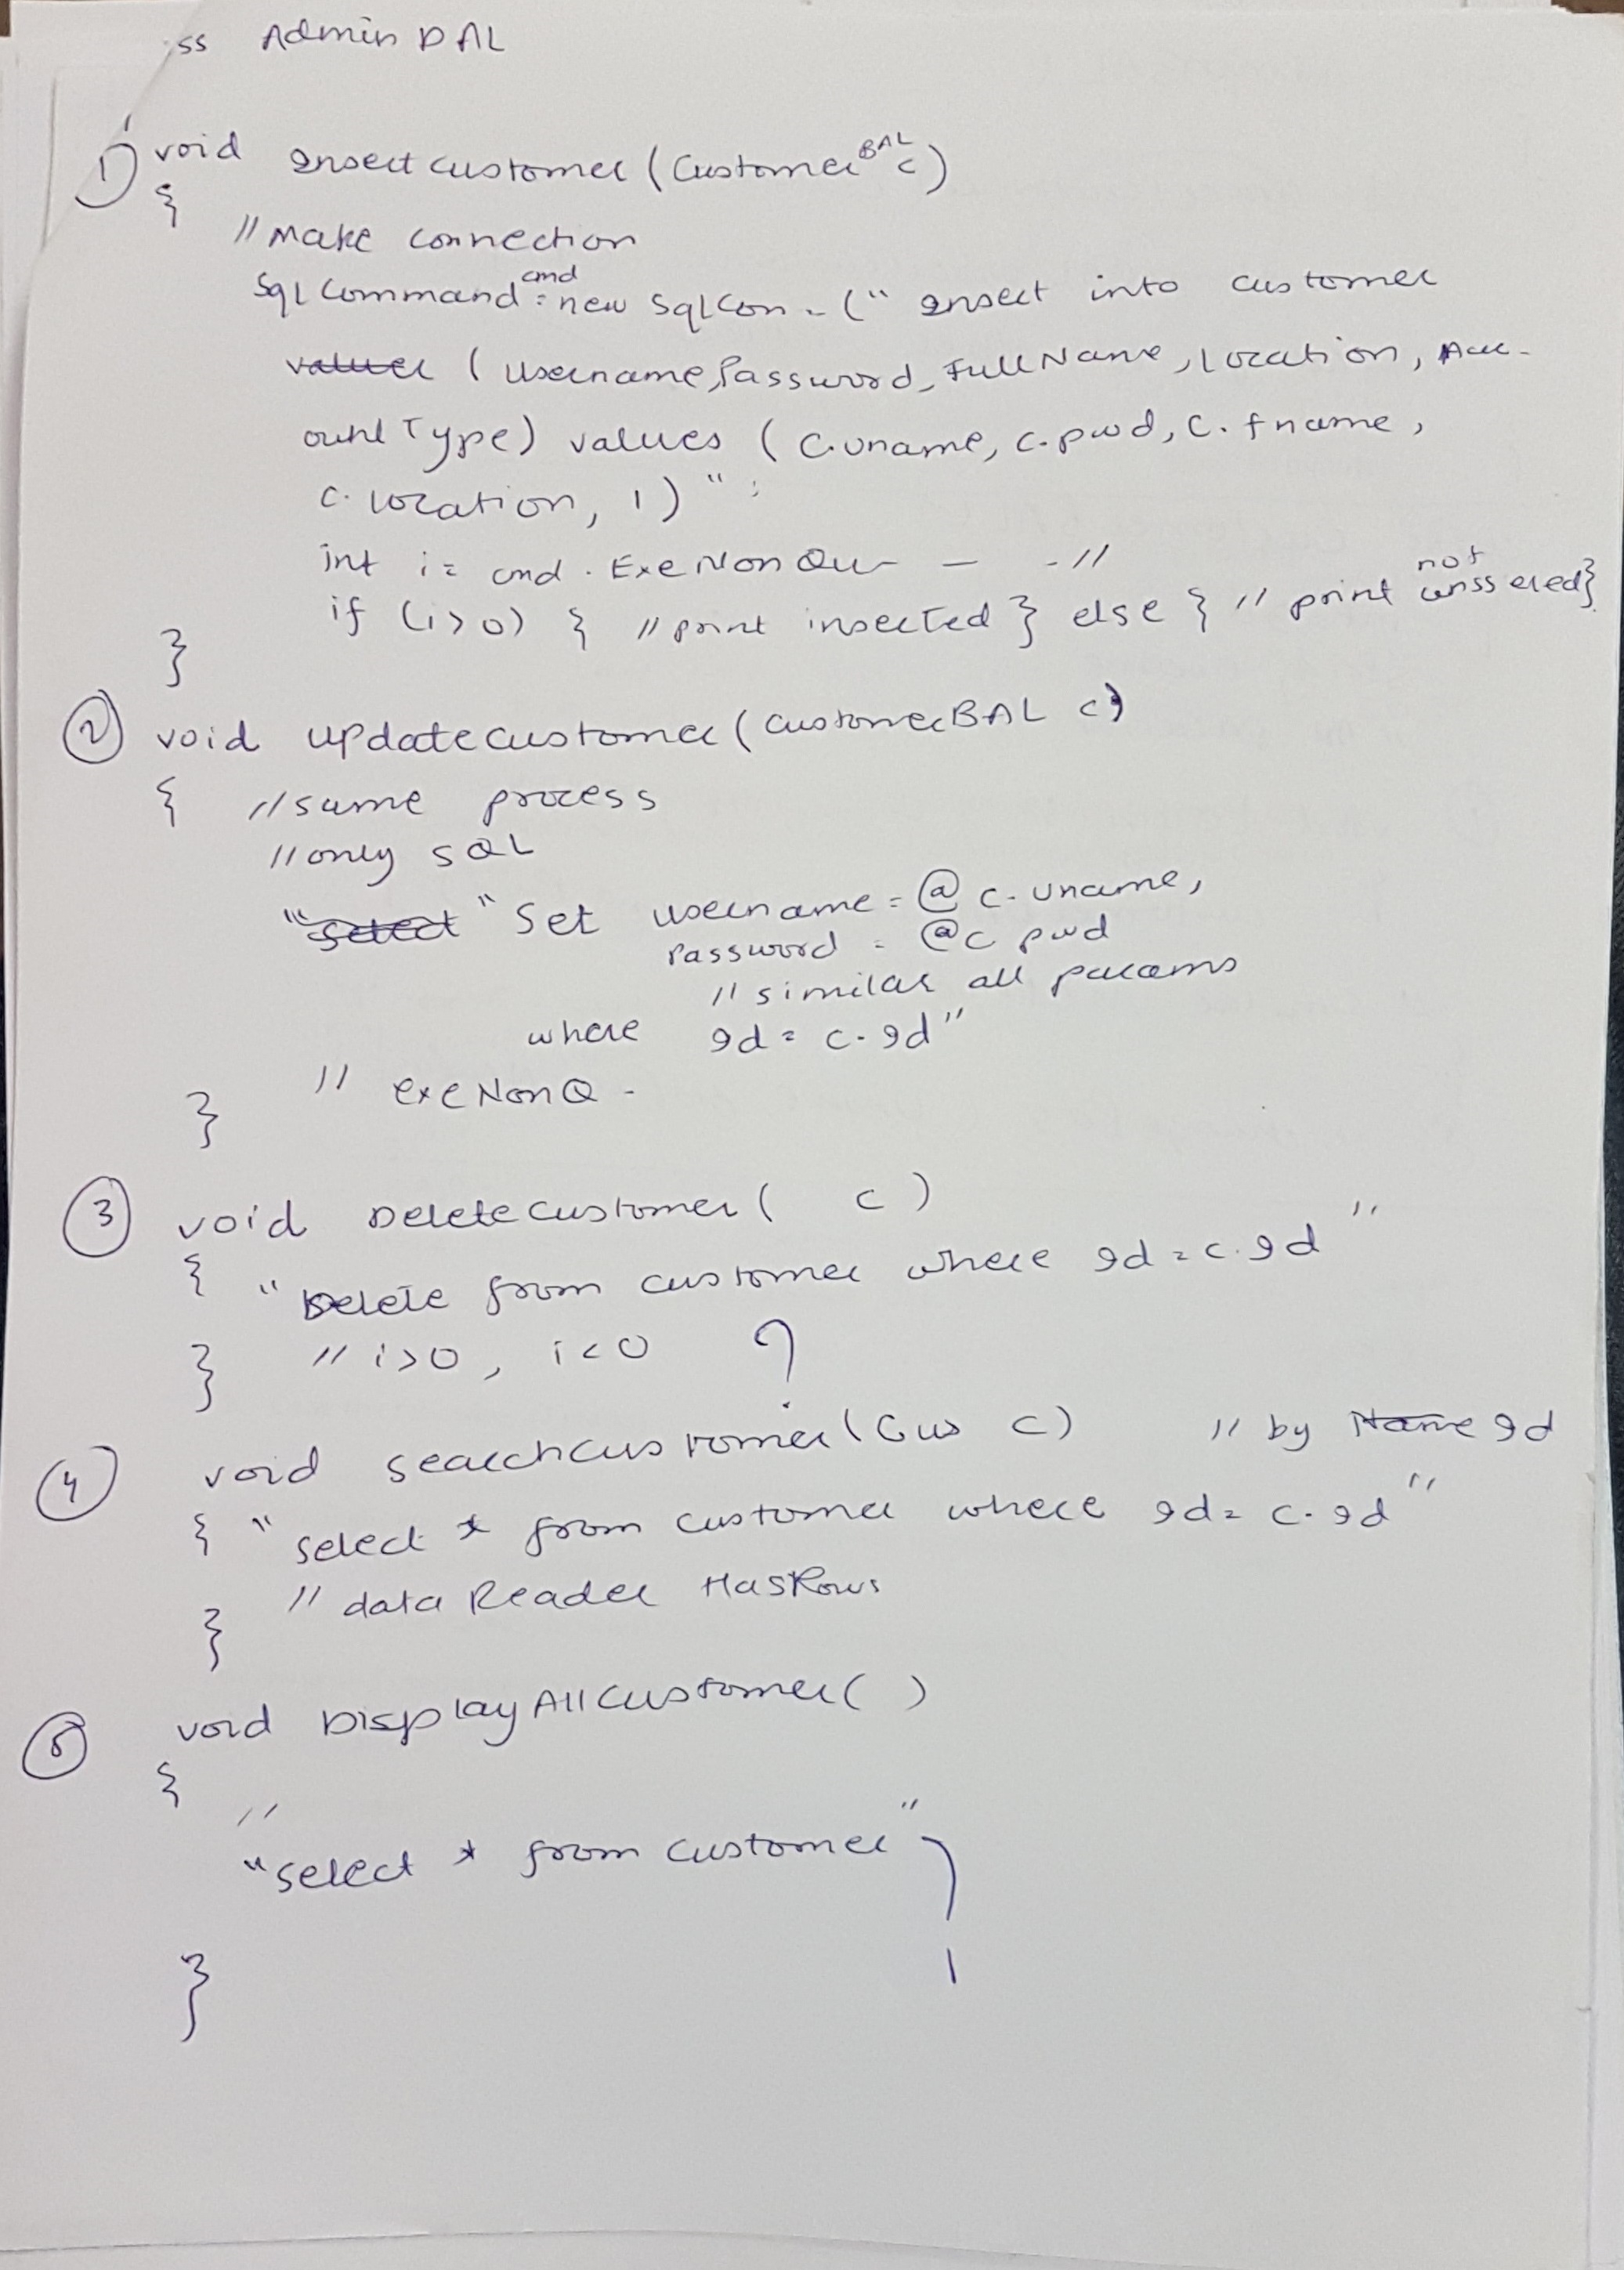 ss Admin DAL
1) void Insertcustomer (Customer BAL c)
{
// Make connection
Sql Command cmd = new SqlCon - (" Insert into customer
values ( Username, Password, FullName, Location, Acc-
ount Type) values ( C.uname, c.pwd, C. fname,
c. location, 1) " ;
int i = cmd . ExeNonQu - - //
if (i > 0) { // print inserted } else { // print not inssered}
}
2 void updatecustomer (customerBAL c)
{ // same process
// only SQL
"Select " Set username = @ c. uname,
Password = @c pwd
// similar all params
where Id = c. Id "
// exeNonQ -
}
3 void Deletecustomer ( c )
{ " Delete from customer where Id = c. Id "
} // i>0 , i<0 ?
4 void searchcustomer (Cus c) // by Name Id
{ " select * from customer where Id = c. Id "
// data Reader HasRows
}
5 void Display All customer ( )
{
//
"select * from customer "
}